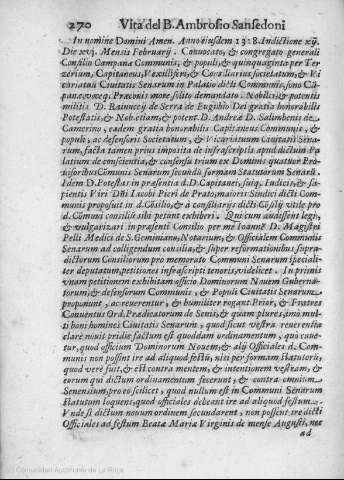 270 Vita del B. Ambrosio Sansedoni
In nomine Domini Amen. Anno eiusdem 1318. Indictione xij.
Die xvj. Mensis Februarij. Conuocato, & congregato generali
Consilio Campana Communis, & populi, & quinquaginta per Ter-
zerium, Capitaneus, Vexilliferi, & Consiliarius societatum, & Vi
cariatuum Ciuitatis Senarum in Palatio dicti Communis, sono Cã-
panæ, vocẽq; Præconis more solito demandato Nobilis, & potentis
militis D. Rainuccij de Serra de Eugubio Dei gratia honorabilis
Potestatis, & Nob. etiam, & potent. D. Andreæ D. Salimbenis de
Camerino, eadem gratia honorabilis Capitaneus Communis, &
populi, ac defensoris Societatum, & Vicariatuum Ciuitatis Sena-
rum, facta tamen prius imposita de infrascriptis apud dictum Pa
latium de conscientia, & consensu trium ex Dominis quatuor Pro-
uisoribus Cõmunis Senarum secundũ formam Statutorum Senaẽ.
Idem D. Potestas in præsentia d. d. Capitanei, suiq. Iudicis, & sa-
pientis Viri Dñi Iacobi Pieri de Prato, maioris Sindici dicti Com-
munis proposuit in d. Cõsilio, & à consiliarijs dicti Cõsilij vtile pro
d. Cõmuni consilium sibi petunt exhiberi. Qui cum audissent legi,
& vulgarizari in præsenti Consilio per me Ioanẽ D. Magistri
Pelli Medici de S. Geminiano, Notarium, & Officialem Communis
Senarum ad colligendum consilia, & super reformationibus supra-
dictorum Consiliorum pro memorato Communi Senarum speciali-
ter deputatum, petitiones infrascripti tenoris, videlicet. In primis
vnam petitionem exhibitam officio Dominorum Nouem Guberna-
torum, & defensorum Communis, & Populi Ciuitatis Senarum,
proponunt, ac reuerenter, & humiliter rogant Prior, & Fratres
Conuentus Ord. Prædicatorum de Senis, & quàm plures, imò mul
ti boni homines Ciuitatis Senarum, quod sicut vestra reuerentia
clarè nouit pridie factum est quoddam ordinamentum, quò caue-
tur, quod officium Dominorum Nouem, & alij Officiales d. Com-
munis non possint ire ad aliquod festũ, nisi per formam statutorũ,
quod verè fuit, & est contra mentem, & intentionem vestram, &
eorum qui dictum ordinamentum fecerunt, & contra omnium
Senensium, pro eo scilicet, quod nullum est in Communi Senarum
statutum loquens, quod officiales debeant ire ad aliquod festum.
Vnde si dictum nouum ordinem secundarent, non possent ire dicti
Officiales ad festum Beatæ Mariæ Virginis de mense Augusti, nec
ad
Comunidad Autónoma de La Rioja